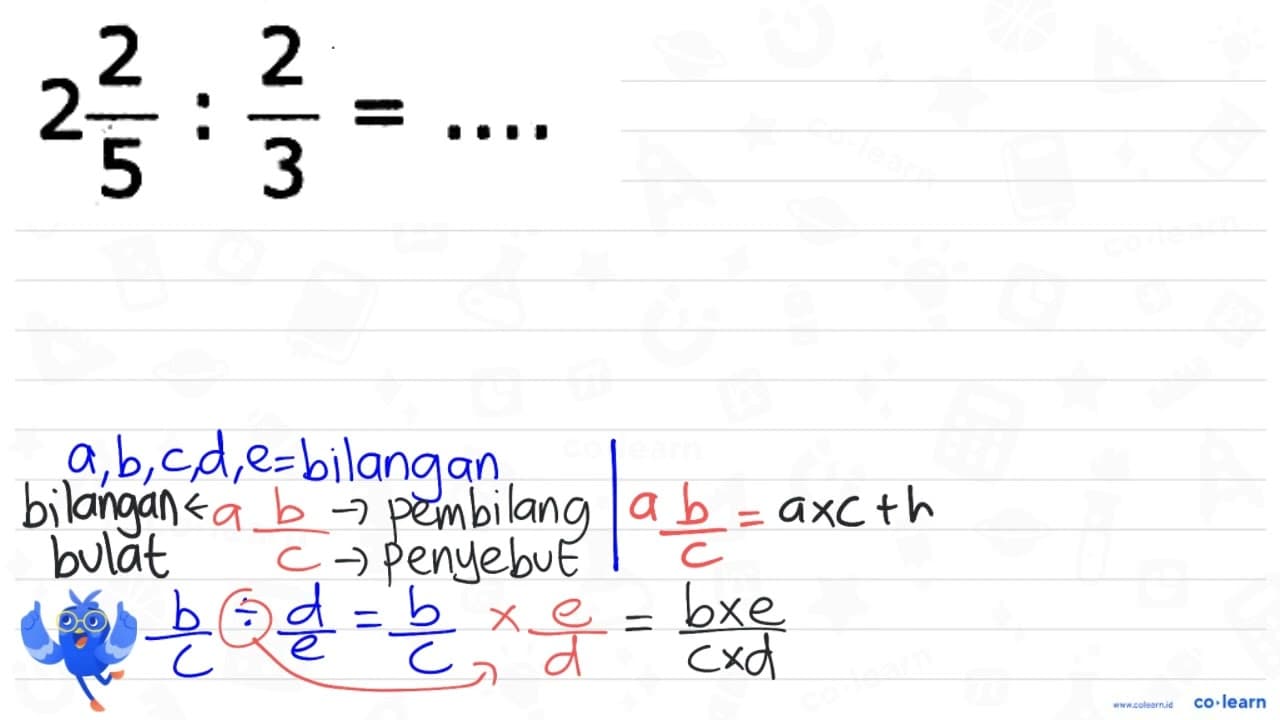 2 2/5 : 2/3 = ....
a, b, c, d, e = bilangan
bilangan bulat ← a b/c → pembilang
→ penyebut
a b/c = axc + h
b/c ÷ d/e = b/c × e/d = bxe/cxd
www.colearn.id co·learn